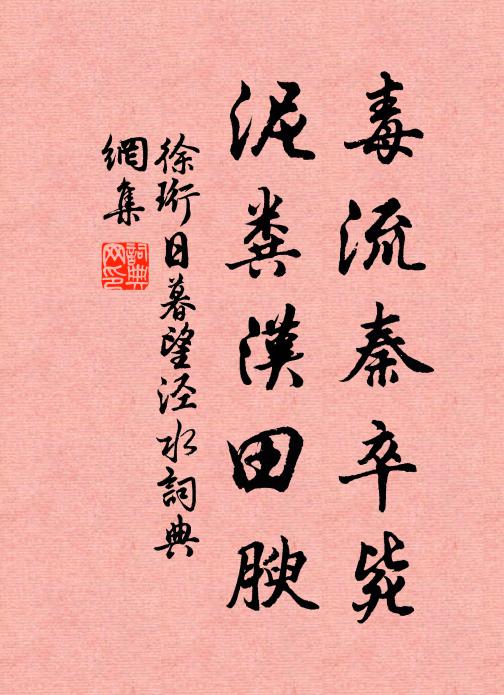 毒流秦卒毙
泥粪汉田腴
徐珩日暮望泾水詞典
網集
詞典網印